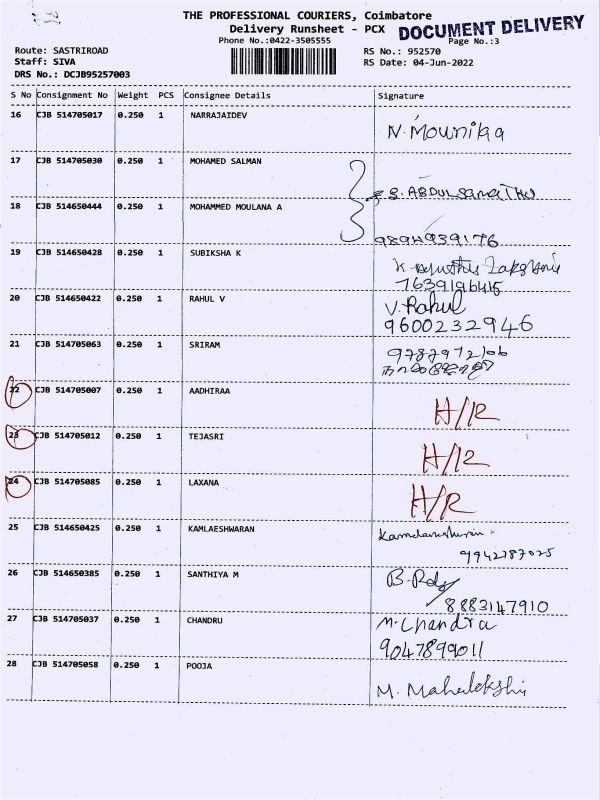 THE PROFESSIONAL COURIERS, Coimbatore
Delivery Runsheet - PCX
DOCUMENT DELIVERY
Phone No.:0422-3505555
Page No.:3
Route: SASTRIROAD
RS No.: 952570
Staff: SIVA
RS Date: 04-Jun-2022
DRS No.: DCJB95257003
S No Consignment No Weight PCS Consignee Details Signature
16 CJB 514705017 0.250 1 NARRAJAIDEV N. Mounika
17 CJB 514705030 0.250 1 MOHAMED SALMAN S. ABDUL
18 CJB 514650444 0.250 1 MOHAMMED MOULANA A 9894939176
19 CJB 514650428 0.250 1 SUBIKSHA K K.
7639196415
20 CJB 514650422 0.250 1 RAHUL V V. Rahul
9600232946
21 CJB 514705063 0.250 1 SRIRAM
22 CJB 514705007 0.250 1 AADHIRAA H/R
23 CJB 514705012 0.250 1 TEJASRI H/R
24 CJB 514705085 0.250 1 LAXANA H/R
25 CJB 514650425 0.250 1 KAMLAESHWARAN
9942187025
26 CJB 514650385 0.250 1 SANTHIYA M B.
8883147910
27 CJB 514705037 0.250 1 CHANDRU M. Chandra
9047899011
28 CJB 514705058 0.250 1 POOJA M. Mahalekshi